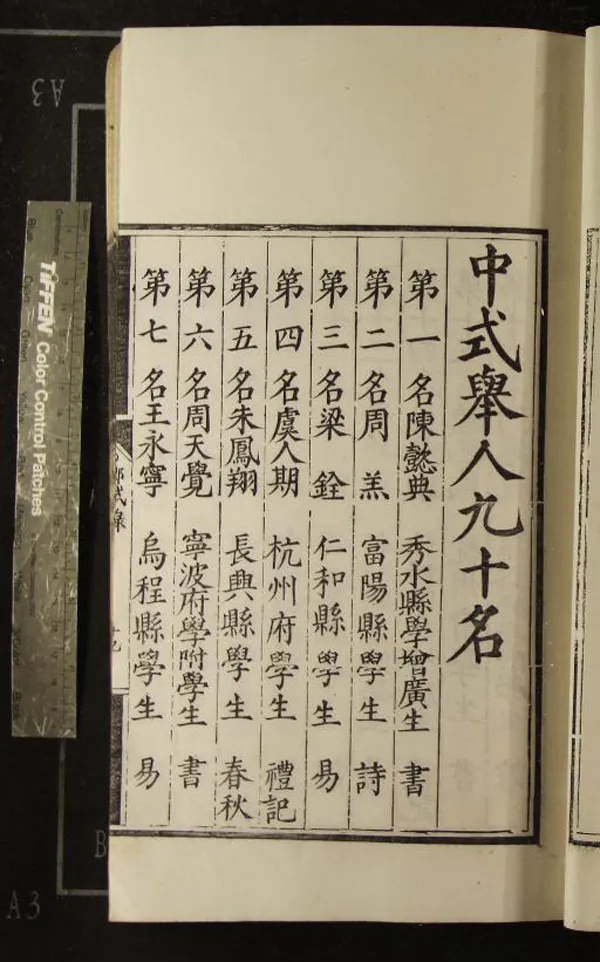 中式舉人九十名
第一名陳懿典 秀水縣學增廣生 書
第二名周 羔 富陽縣學生 詩
第三名梁 銓 仁和縣學生 易
第四名虞人期 杭州府學生 禮記
第五名朱鳳翔 長興縣學生 春秋
第六名周天覺 寧波府學附學生 書
第七名王永寧 烏程縣學生 易
鄉試錄
A3
TIFFEN Color Control Patches
Blue
B
A3